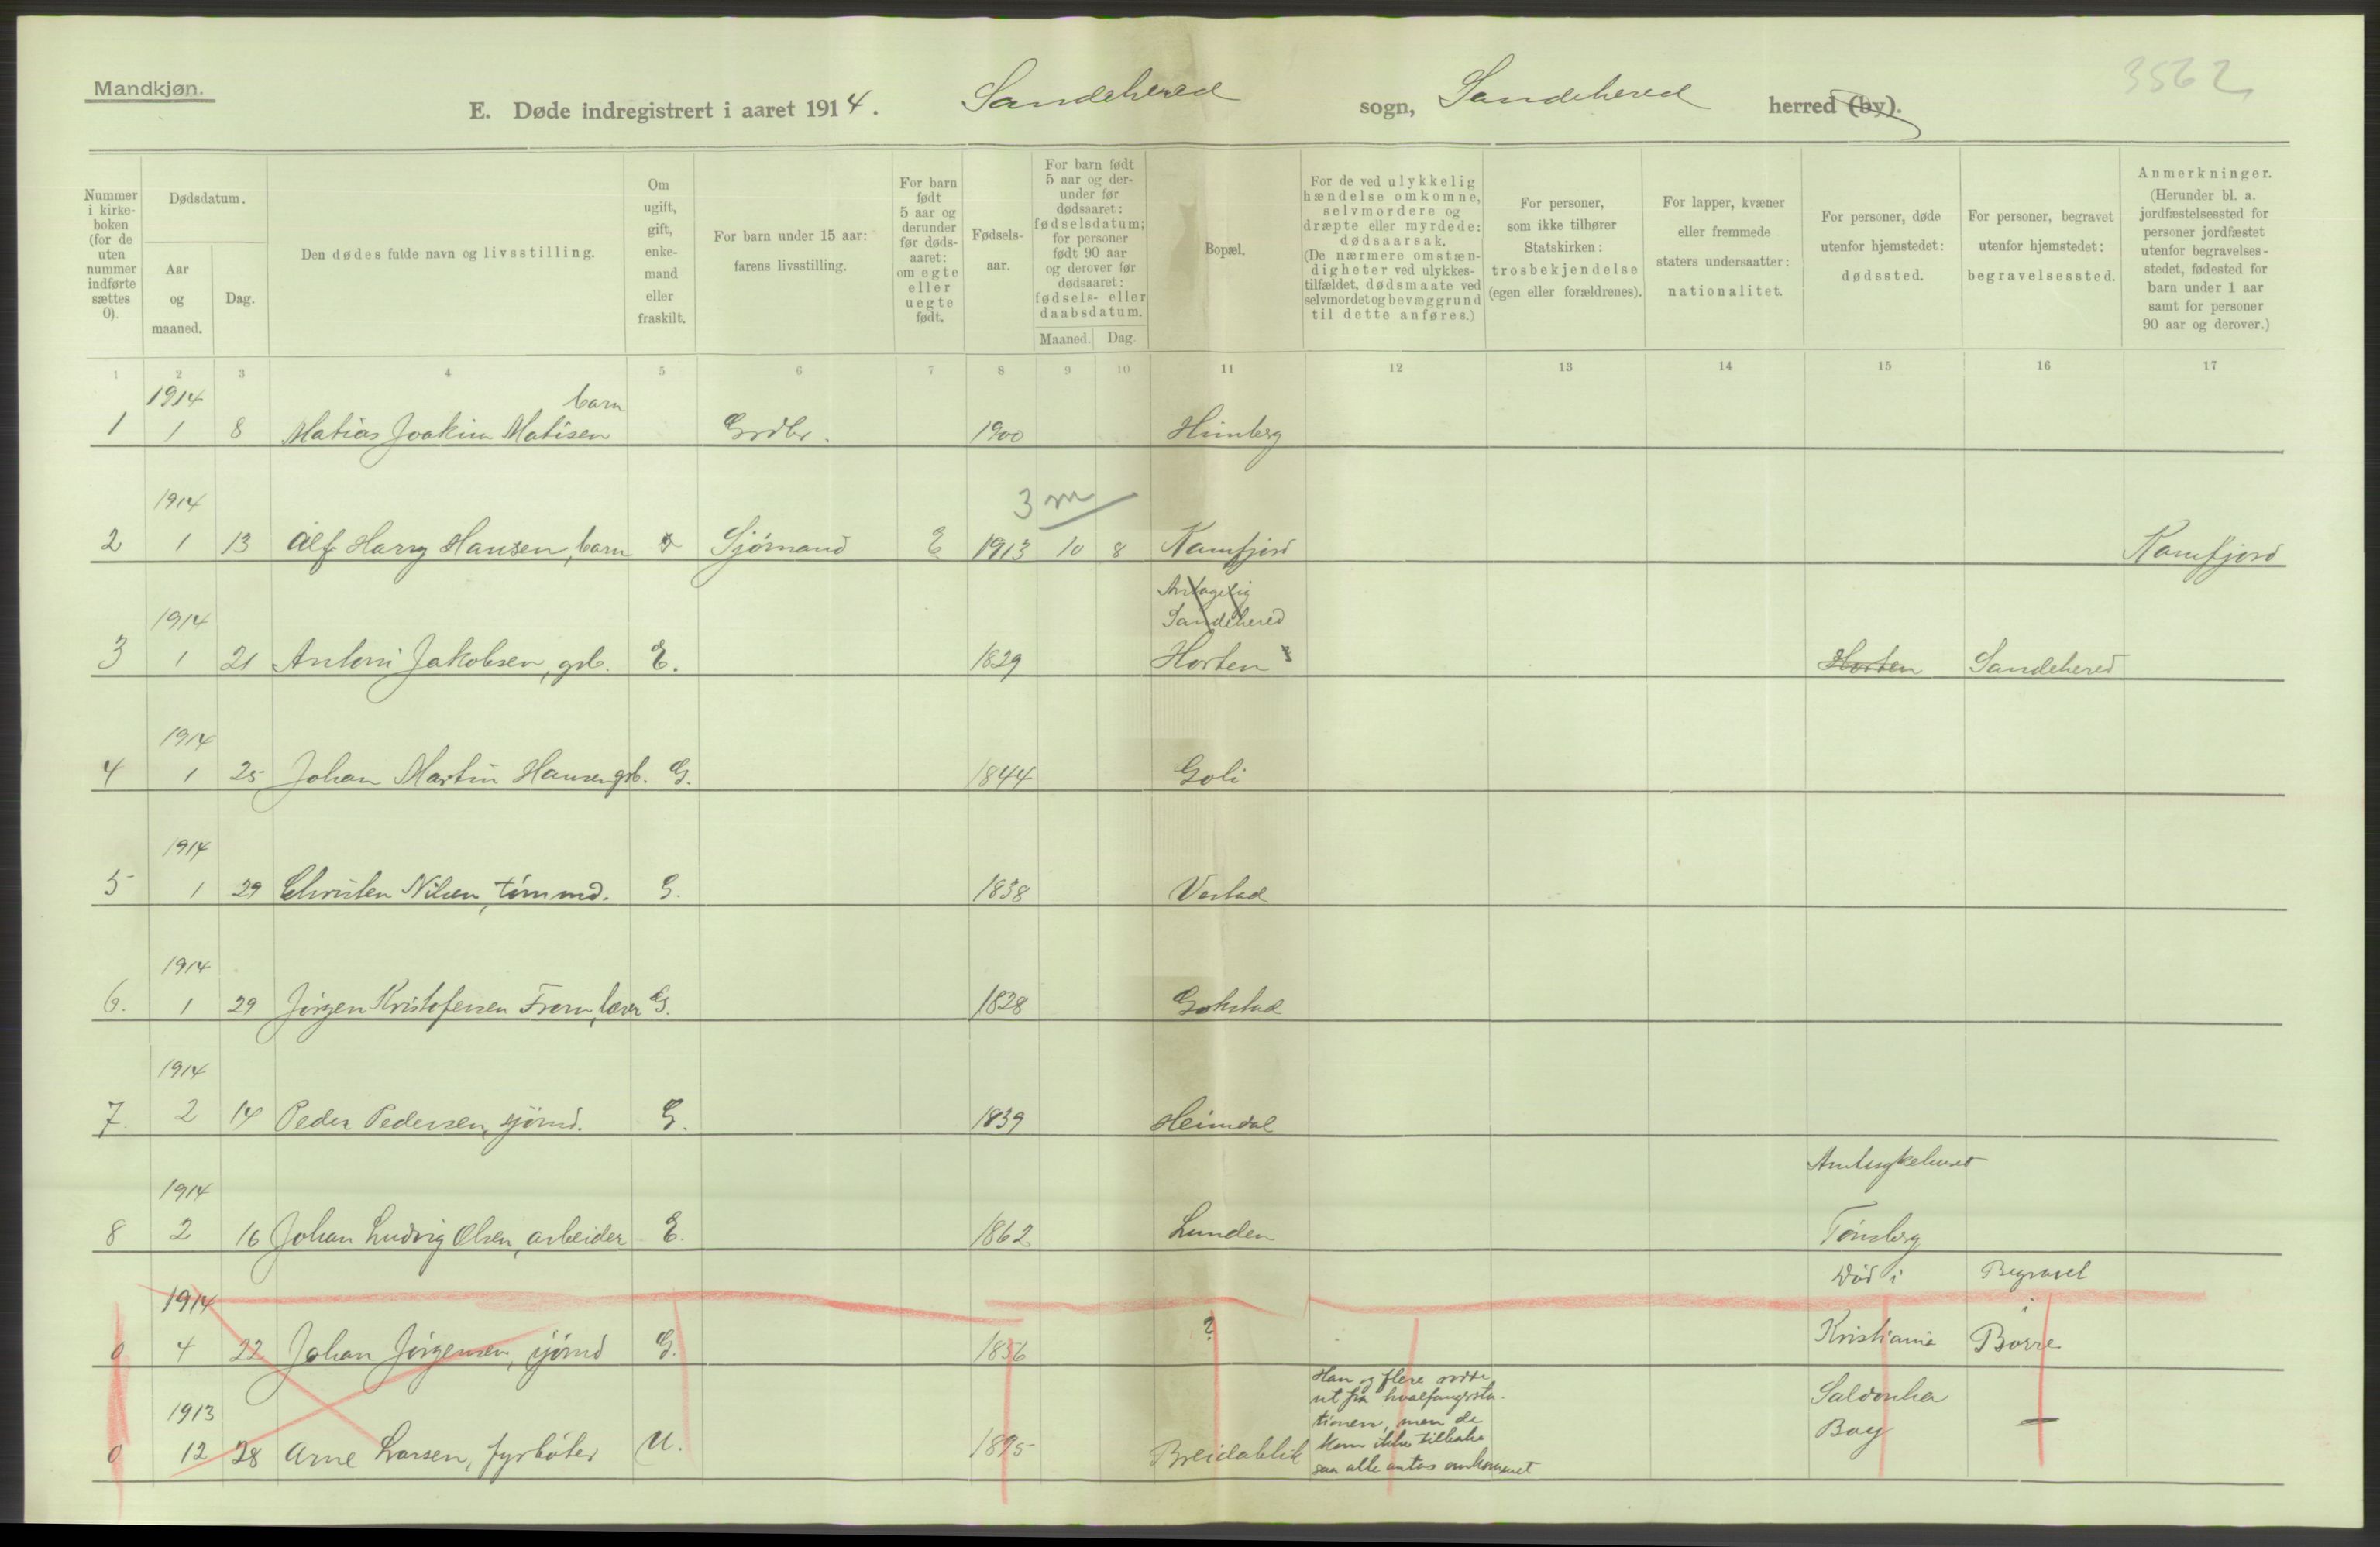 Mandkjøn.
3562
E. Døde indregistrert i aaret 1914. Sandehered sogn, Sandehered herred (by).
Nummer i kirke-boken (for de uten nummer indførte sættes 0).
Dødsdatum.
Aar og maaned.
Dag.
Den dødes fulde navn og livsstilling.
Om ugift, gift, enke-mand eller fraskilt.
For barn under 15 aar: farens livsstilling.
For barn født 5 aar og derunder før døds-aaret: om egte eller uegte født.
Fødsels-aar.
For barn født 5 aar og der-under før dødsaaret: fødselsdatum; for personer født 90 aar og derover før dødsaaret: fødsels- eller daabsdatum.
Maaned. Dag.
Bopæl.
For de ved ulykkelig hændelse omkomne, selvmordere og dræpte eller myrdede: dødsaarsak. (De nærmere omstæn-digheter ved ulykkes-tilfældet, dødsmaate ved selvmordet og bevæggrund til dette anføres.)
For personer, som ikke tilhører Statskirken: trosbekjendelse (egen eller forældrenes).
For lapper, kvæner eller fremmede staters undersaatter: nationalitet.
For personer, døde utenfor hjemstedet: dødssted.
For personer, begravet utenfor hjemstedet: begravelsessted.
Anmerkninger. (Herunder bl. a. jordfæstelsessted for personer jordfæstet utenfor begravelses-stedet, fødested for barn under 1 aar samt for personer 90 aar og derover.)
1 2 3 4 5 6 7 8 9 10 11 12 13 14 15 16 17
1914 barn
1 1 8 Matias Joakim Matisen Grdbr. 1900 Himberg
1914 3 m
2 1 13 Alf Harry Hansen, barn Sjømand E 1913 10 8 Kamfjord Kamfjord
Antagelig
1914 Sandehered
3 1 21 Antoni Jakobsen, grb. E. 1829 Horten Horten Sandehered
1914
4 1 25 Johan Martin Hansen grb. G. 1844 Goli
1914
5 1 29 Christen Nilsen, tømmd. G. 1838 Vestad
1914
6. 1 29 Jørgen Kristofersen From, lærer G. 1828 Gokstad
1914
7. 2 14 Peder Pedersen, sjømd. G. 1839 Heimdal
1914 Amtsykehuset
8 2 16 Johan Ludvig Olsen, arbeider E. 1862 Lunden Tønsberg
1914 Død i Begravet i
0 4 22 Johan Jørgensen, sjømd G. 1856 ? Kristiania Borre
Han og flere rodde
ut fra hvalfangersta-
1913 tionen, men de Saldonha
0 12 28 Arne Larsen, fyrbøter U. 1895 Breidablik kom ikke tilbake Bay —
saa alle antas omkommet